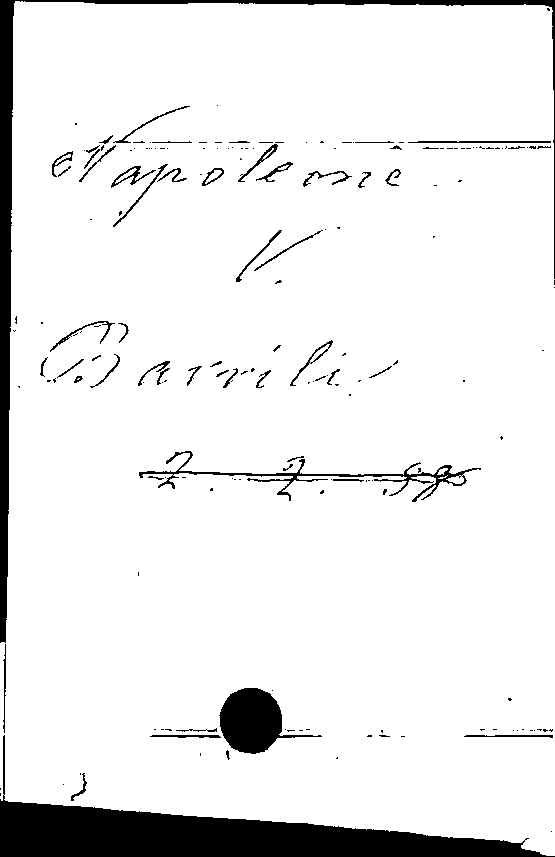 Napoleone
V.
Barrili
2. 2. 98